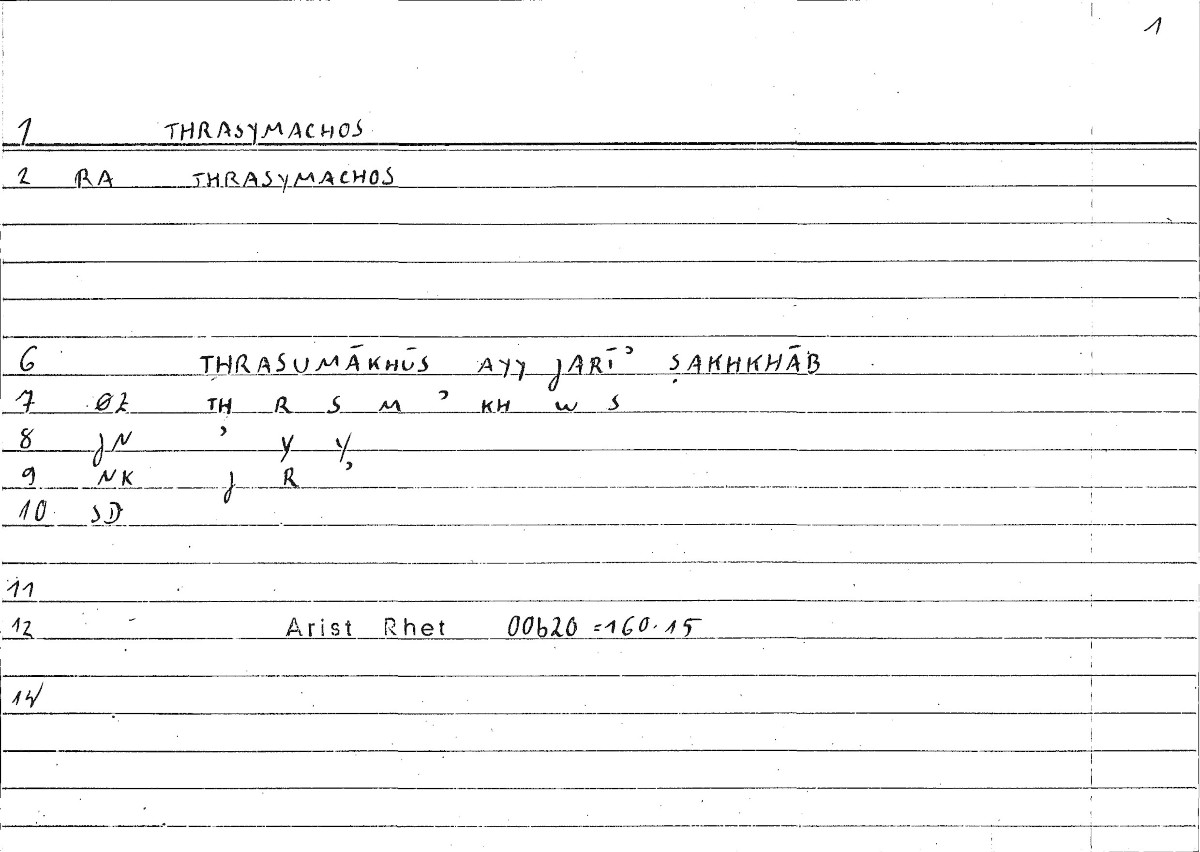 1
1 THRASYMACHOS
2 RA THRASYMACHOS
6 THRASUMĀKHŪS AYY JARĪʾ ṢAKHKHĀB
7 ØZ TH R S M ʾ KH W S
8 JN ʾ Y Y
9 NK J R ʾ
10 SD
11
12 Arist Rhet 00b20 =160.15
14